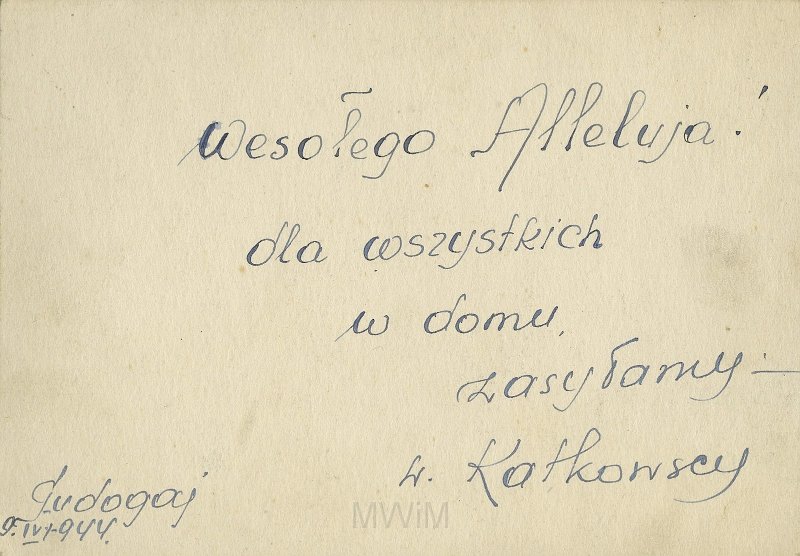 Wesołego Alleluja!
dla wszystkich
w domu,
zasyłamy —
w. Katkowscy
Judogaj
9.IV.1944.
MWiM